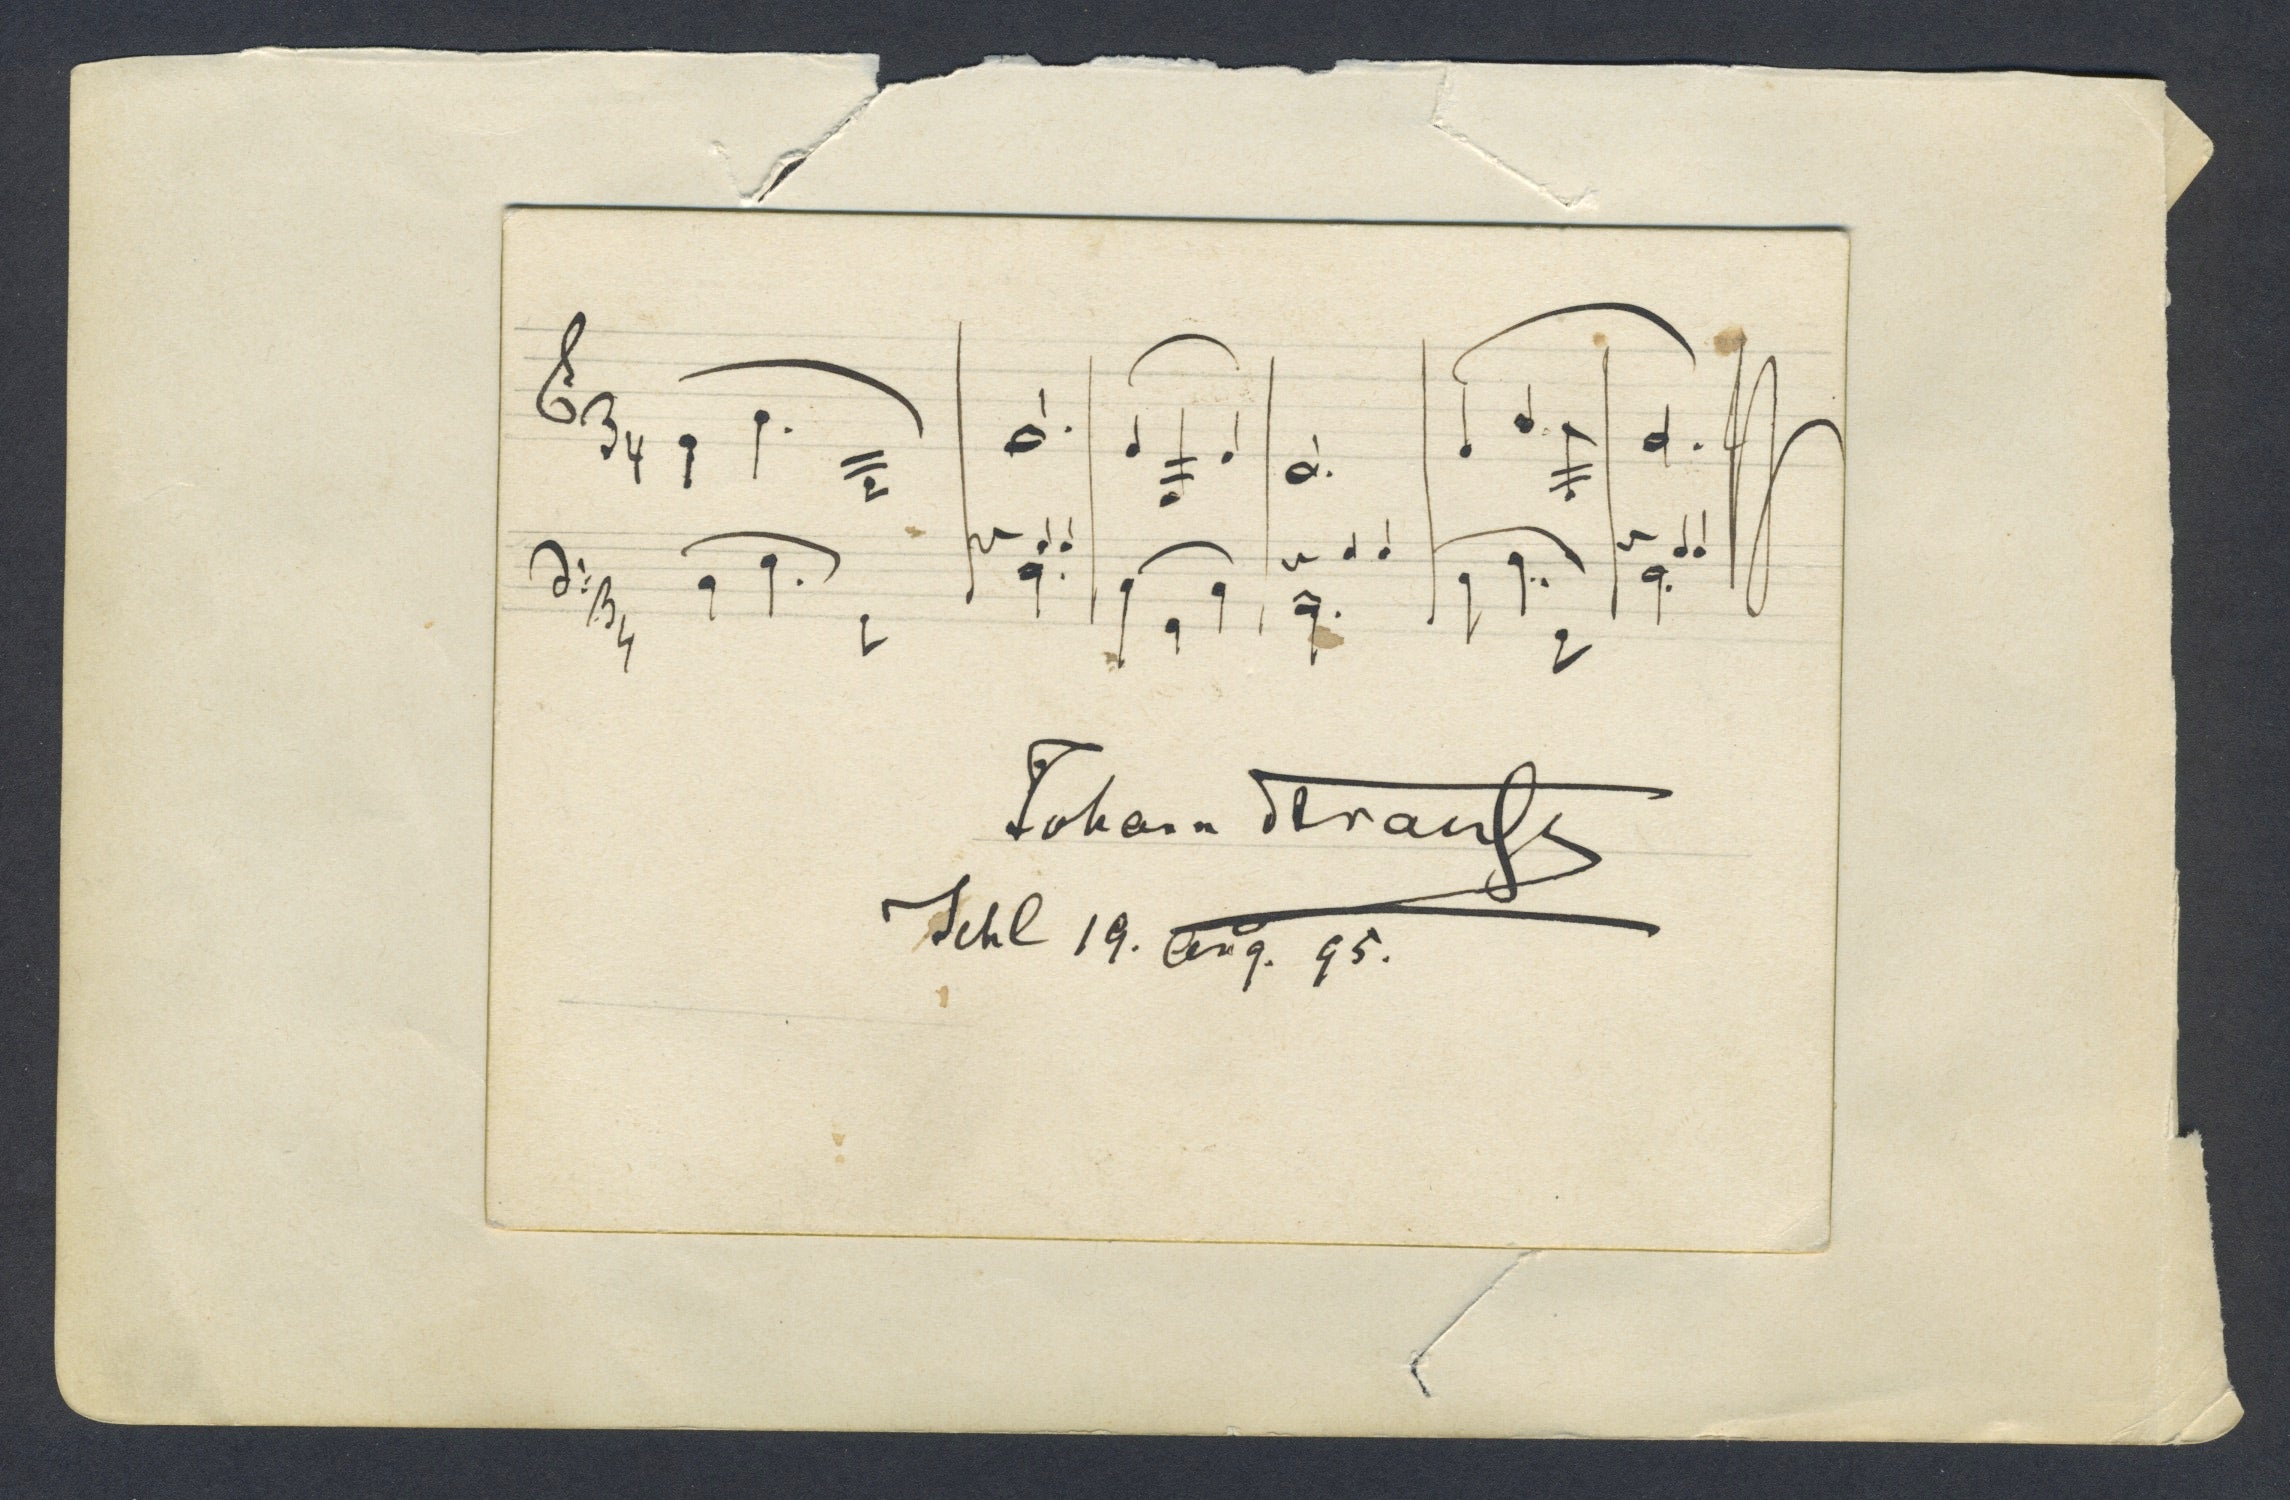 3 4
3 4
Johann Strauß
Ischl 19. Aug. 95.